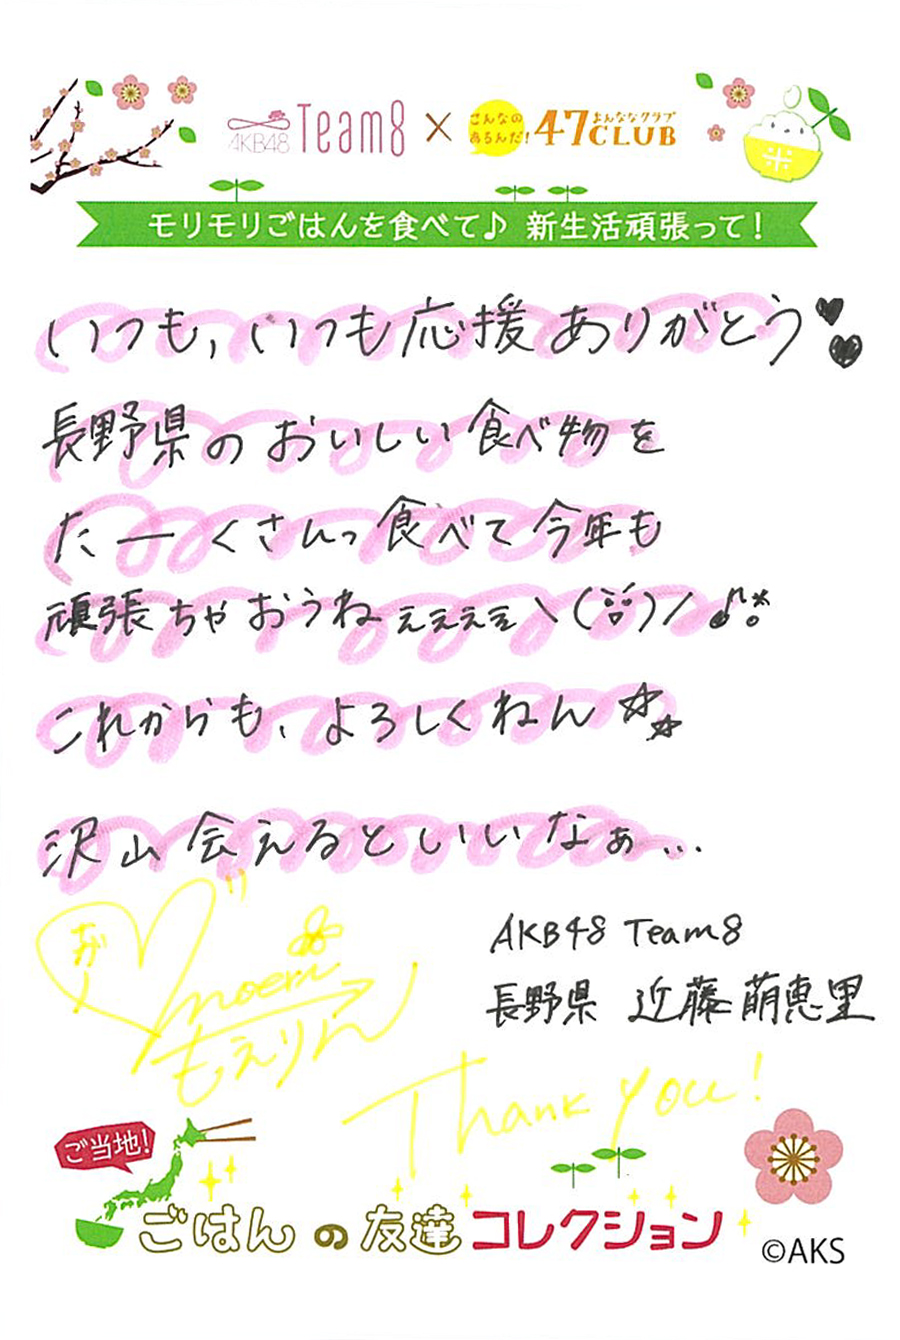 AKB48 Team8 × こんなのあるんだ! 47CLUB よんななクラブ
モリモリごはんを食べて♪ 新生活頑張って!
いつも、いつも応援ありがとう♥♥
長野県のおいしい食べ物を
たーくさんっ食べて今年も
頑張ちゃおうねぇぇぇぇ
これからも、よろしくねん☆☆
沢山会えるといいなぁ...
moerin
もえりん
AKB48 Team8
長野県 近藤萌恵里
Thank you!
ご当地!
ごはんの友達コレクション
©AKS